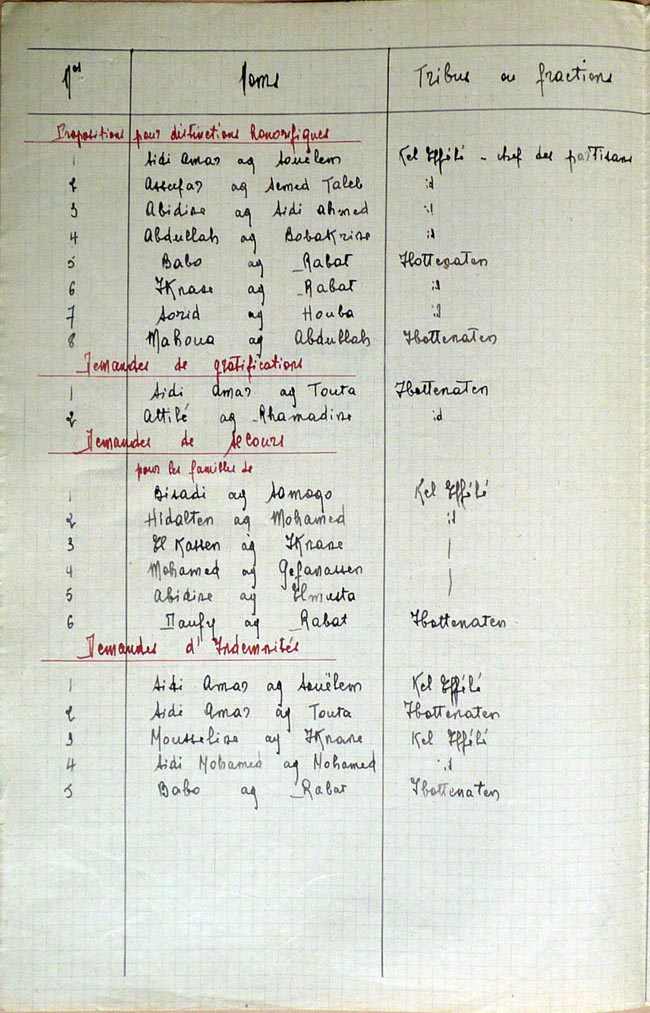 Nos Noms Tribus ou fractions
Propositions pour distinctions honorifiques
1 Sidi Amar ag Souélem Kel Efféli - chef des partisans
2 Assefar ag Semed Taleb id
3 Abidine ag Sidi Ahmed id
4 Abdullah ag Bobakrine id
5 Babo ag Rabat Ibottenaten
6 Iknane ag Rabat id
7 ag Houba id
8 Mahoua ag Abdullah Ibottenaten
Demandes de gratifications
1 Sidi Amar ag Touta Ibottenaten
2 Attilé ag Rhamadine id
Demandes de secours
pour les familles de
1 Bisadi ag Samago Kel Efféli
2 Hidalten ag Mohamed id
3 El Kassen ag Iknane |
4 Mohamed ag Gefanassen |
5 Abidine ag Elmusta |
6 ag Rabat Ibottenaten
Demandes d'Indemnités
1 Sidi Amar ag Souëlem Kel Efféli
2 Sidi Amar ag Touta Ibottenaten
3 Mousseline ag Iknane Kel Efféli
4 Sidi Mohamed ag Mohamed id
5 Babo ag Rabat Ibottenaten